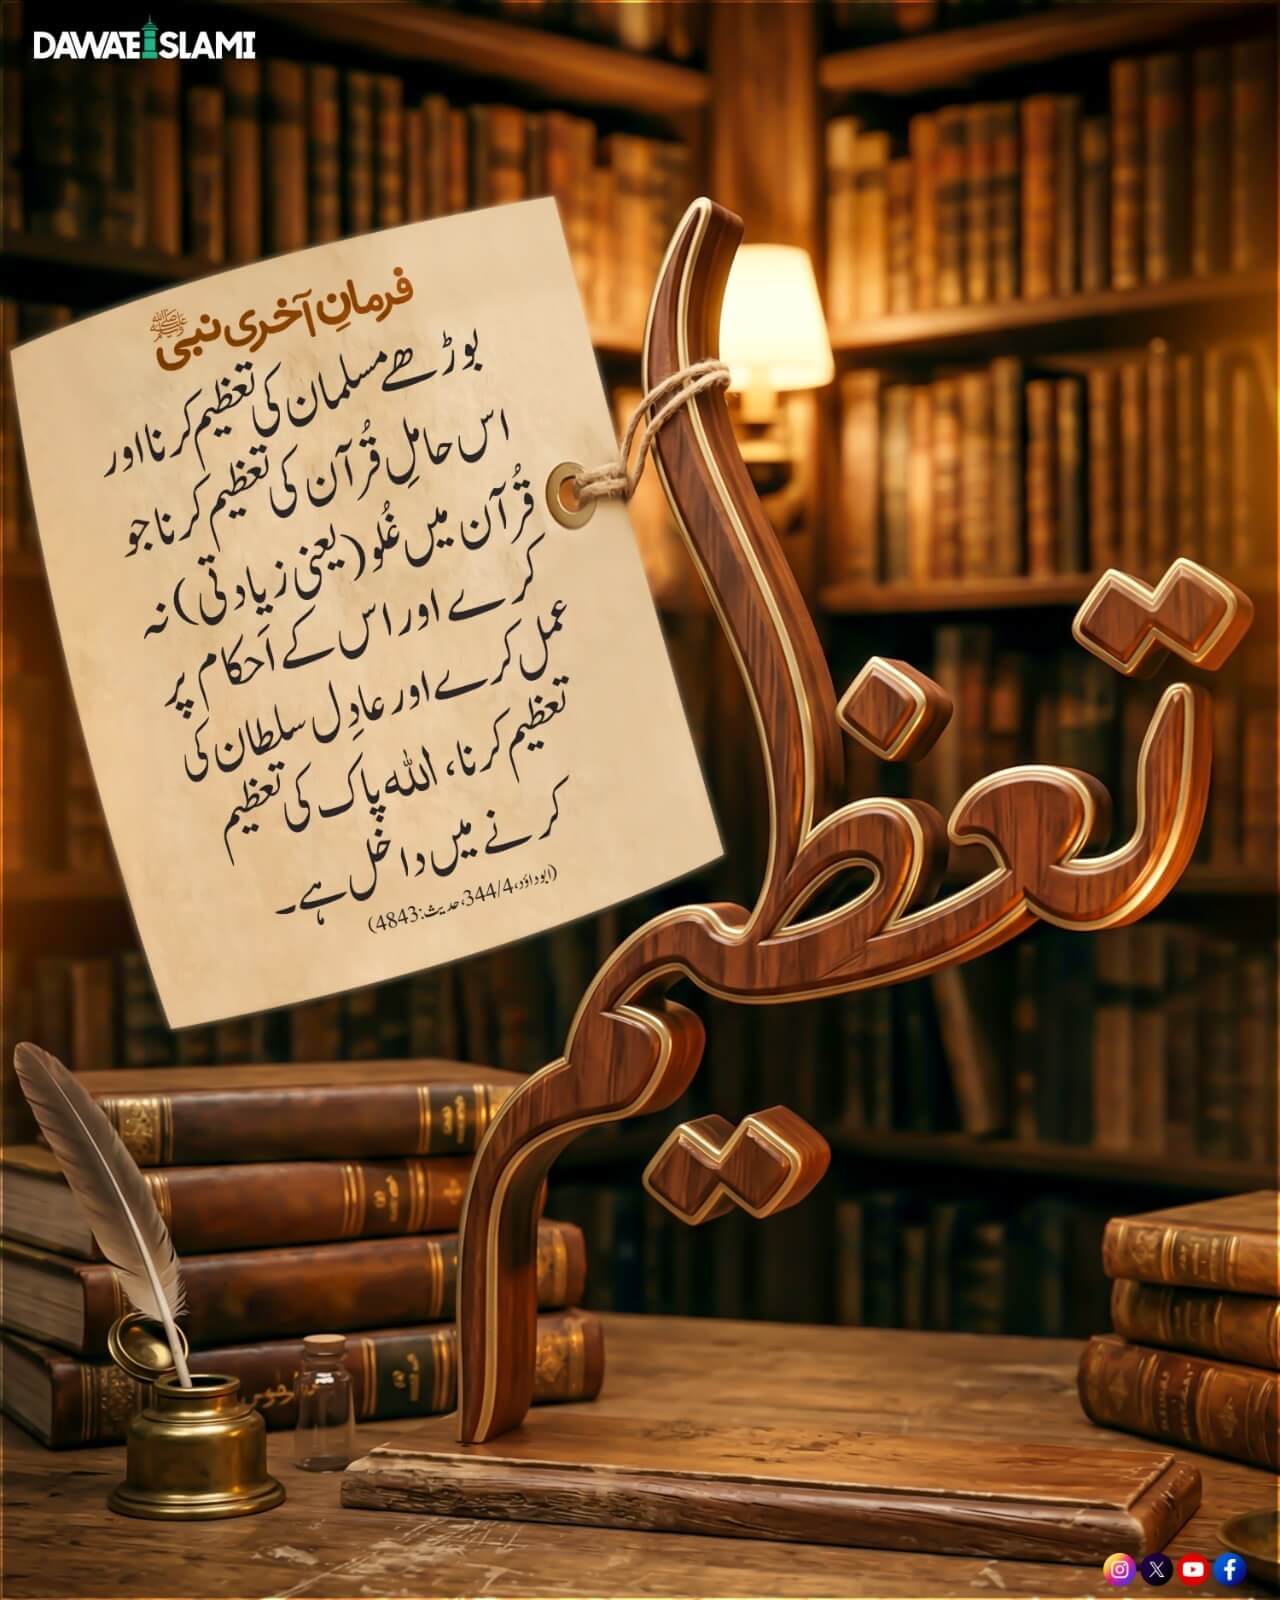 DAWATEISLAMI
فرمانِ آخری نبی ﷺ
بوڑھے مسلمان کی تعظیم کرنا اور
اس حاملِ قُرآن کی تعظیم کرنا جو
قُرآن میں غُلو (یعنی زیادتی) نہ
کرے اور اس کے اَحکام پر
عمل کرے اور عادِل سلطان کی
تعظیم کرنا، اللہ پاک کی تعظیم
کرنے میں داخل ہے۔
(ابوداؤد، 344/4، حدیث: 4843)
تعظیم